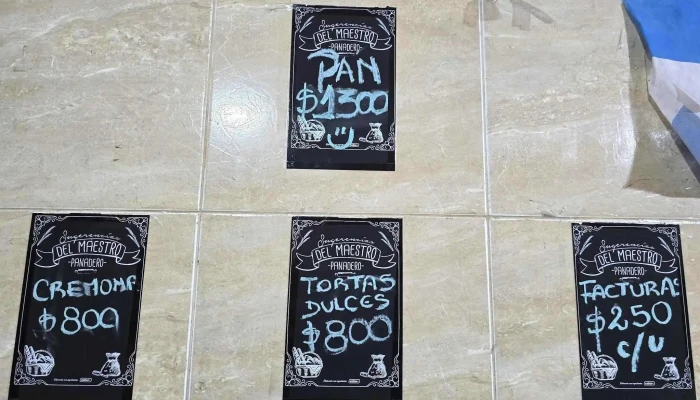 Sugerencias
DEL MAESTRO
PANADERO
PAN
$1300
Sugerencias
DEL MAESTRO
PANADERO
CREMONA
$800
Sugerencias
DEL MAESTRO
PANADERO
TORTAS
DULCES
$800
Sugerencias
DEL MAESTRO
PANADERO
FACTURAS
$250
c/u